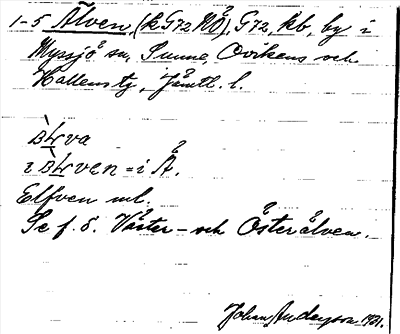 1-5 Älven (k G72 NÖ), G72, kb, by i
Myssjö sn, Sunne, Ovikens och
Hallens tg, Jämtl. l.
i = i Å.
Elfven ml.
Se f. ö. Väster- och Österälven.
Johan Andersson 1921.